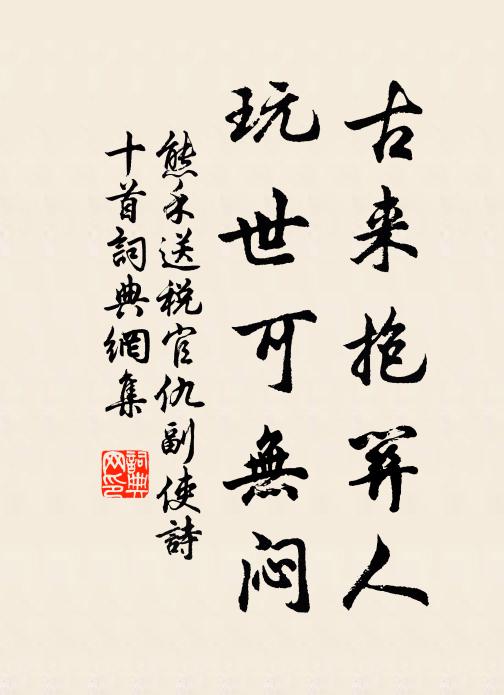 古来抱关人
玩世可無闷
熊禾送税官仇副使詩
十首詞典網集
詞典
网印